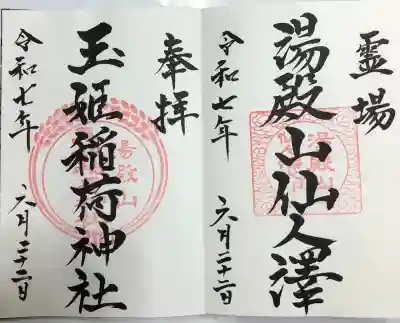 霊場
湯殿山仙人澤
令和七年
六月二十二日
奉拝
玉姫稲荷神社
令和七年
六月二十二日
湯殿山